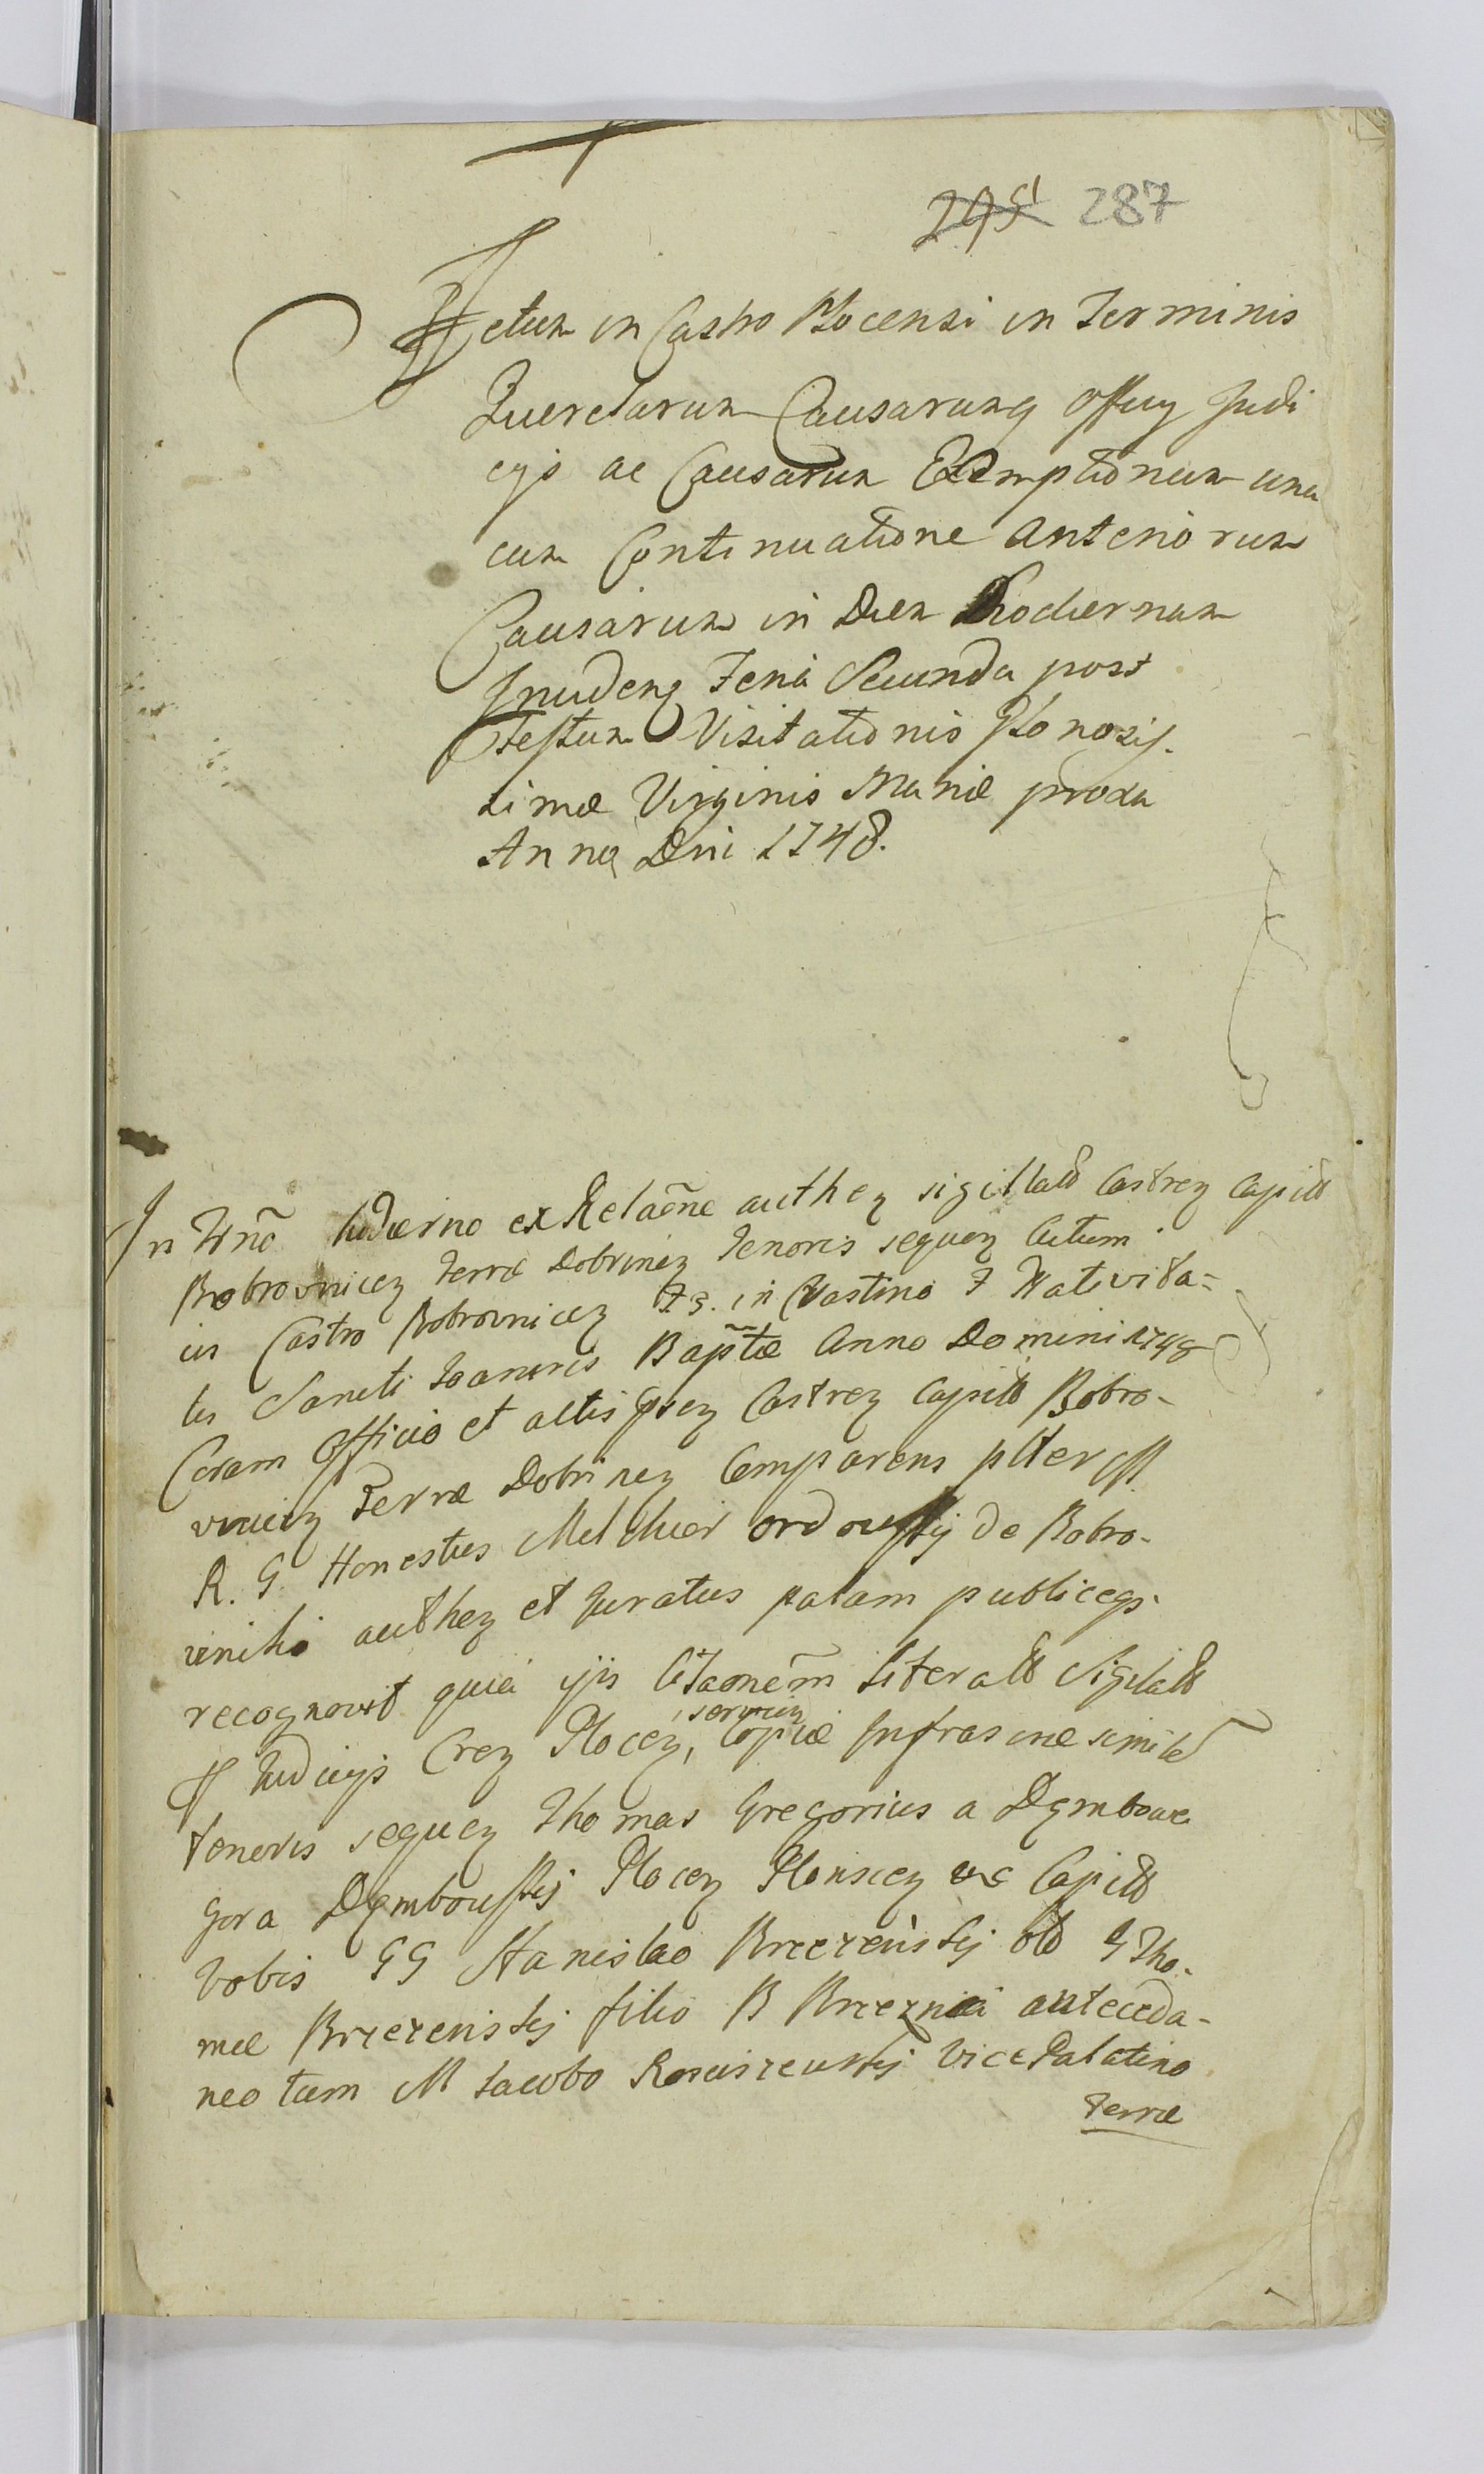 295 287
Actum in Castro Plocensi in Terminis
Querelarum Causarumq Officy Judi
cys ac Causarum Exemptionum una
cum Continuatione Anteriorum
Causarum in Diem Hodiernam
Inciden Feria Secunda post
Festum Visitationis Glorosis-
simæ Virginis Mariæ proxa
Anno Dni 1748.
In Trno hodierno ex Relaõne authen sigillatt Castren Capitt
Bobrovnicen Terræ Dobrinen Tenoris sequen Actum
in Castro Bobrovnicen in Crastino F Nativita-
tis Sancti Joannis Baptæ Anno Domini 1748
Coram Officio et actis pñ Castren Capitt Bobro-
vnicen Terræ Dobrinen Comparens plter M
R. G. Honestus Melchior ordowskj de Bobro-
vniki authen et Juratus palam publiceqs
recognovit quia ijs Citaonem literatt Sigilatt
Judicijs Cren Plocen, servien Copiæ Infrascræ simile
tenoris sequen Thomas Gregorius a Dembowa
Gora Dembowskj Plocen Plonscen &c Capitt
Vobis GG Stanislao Brzezinskj ott G Tho-
mæ Brzezinskj filio B Brzeznia anteceda-
neo tum M Jacobo Rosciszewskj Vice Palatino
Terræ